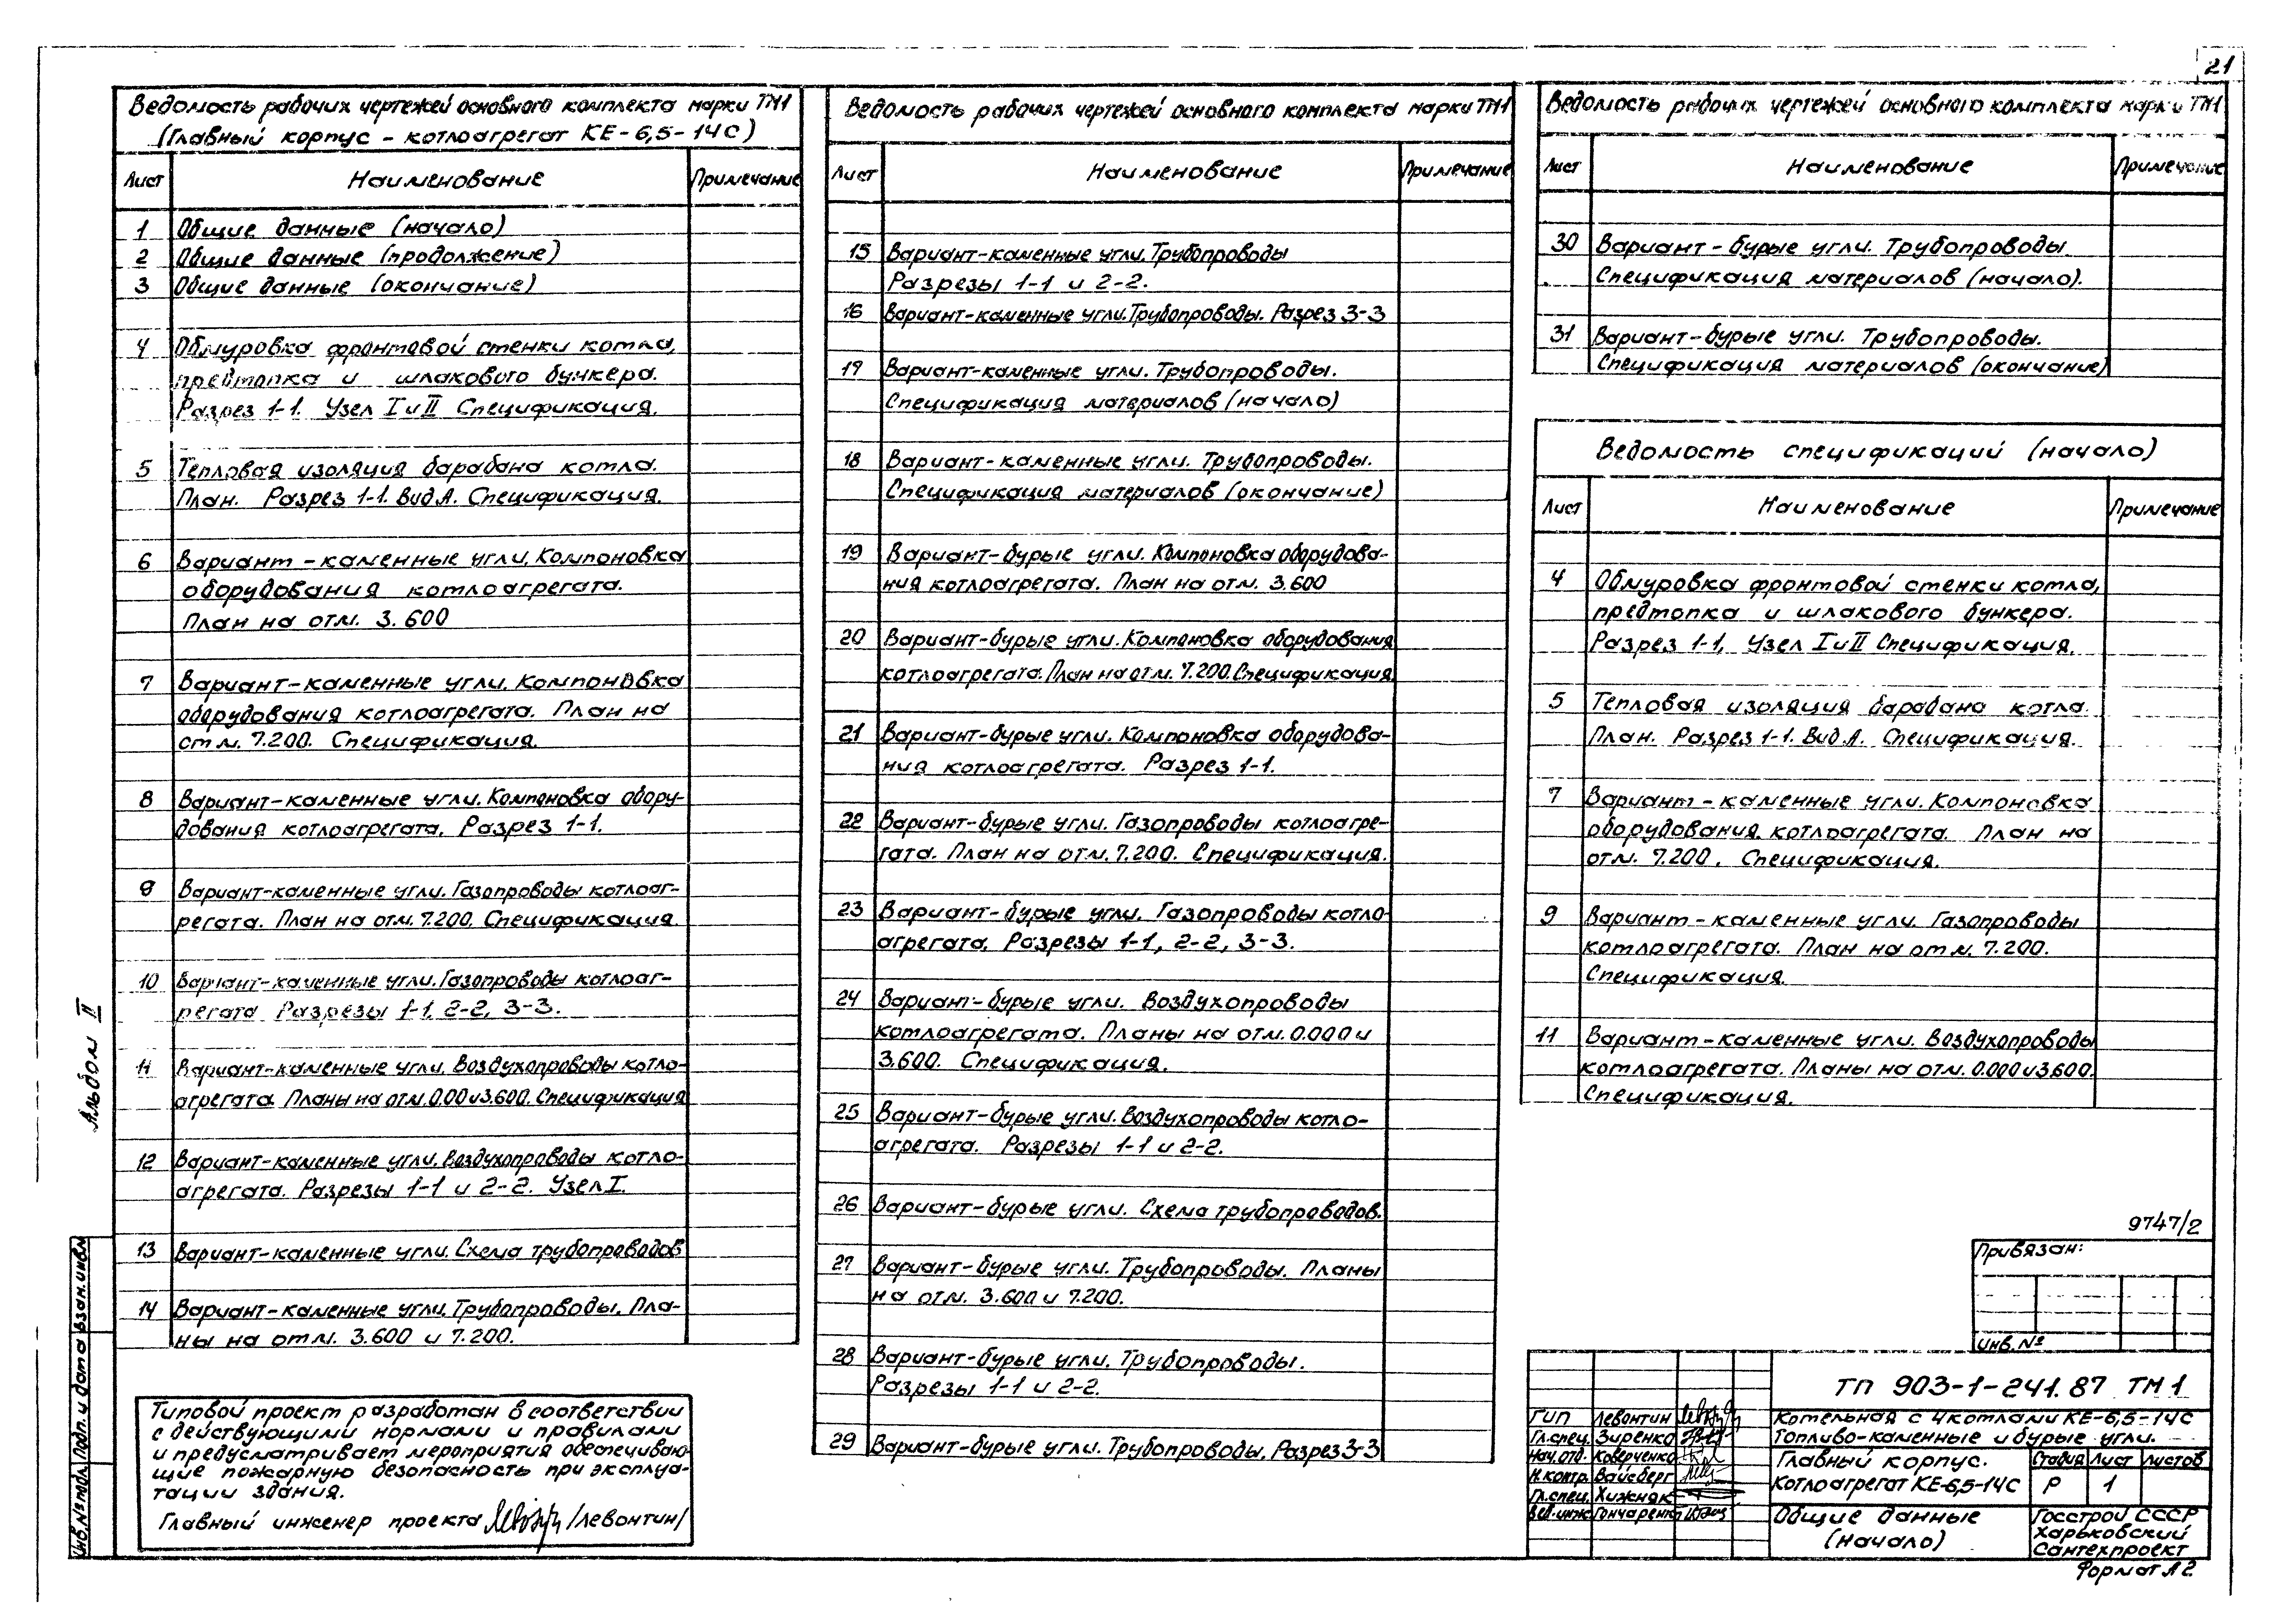 21
Ведомость рабочих чертежей основного комплекта марки ТМ1
(Главный корпус - котлоагрегат КЕ-6,5-14С)
Лист Наименование Примечание
1 Общие данные (начало)
2 Общие данные (продолжение)
3 Общие данные (окончание)
4 Обмуровка фронтовой стенки котла,
предтопка и шлакового бункера.
Разрез 1-1. Узел I и II Спецификация.
5 Тепловая изоляция барабана котла.
План. Разрез 1-1. Вид А. Спецификация.
6 Вариант - каменные угли. Компоновка
оборудования котлоагрегата.
План на отм. 3.600
7 Вариант-каменные угли. Компоновка
оборудования котлоагрегата. План на
отм. 7.200. Спецификация.
8 Вариант-каменные угли. Компоновка обору-
дования котлоагрегата. Разрез 1-1.
9 Вариант-каменные угли. Газопроводы котлоаг-
регата. План на отм. 7.200. Спецификация.
10 Вариант-каменные угли. Газопроводы котлоаг-
регата Разрезы 1-1, 2-2, 3-3.
11 Вариант-каменные угли. Воздухопроводы котло-
агрегата Планы на отм. 0.00 и 3.600. Спецификация
12 Вариант-каменные угли. Воздухопроводы котло-
агрегата. Разрезы 1-1 и 2-2. Узел I.
13 Вариант-каменные угли. Схема трубопроводов
14 Вариант-каменные угли. Трубопроводы. Пла-
ны на отм. 3.600 и 7.200.
Типовой проект разработан в соответствии
с действующими нормами и правилами
и предусматривает мероприятия обеспечиваю-
щие пожарную безопасность при эксплуа-
тации здания.
Главный инженер проекта /Левонтин/
Альбом II
Инв.№ подл. Подп. и дата Взам.инв.№
Ведомость рабочих чертежей основного комплекта марки ТМ1
Лист Наименование Примечание
15 Вариант-каменные угли. Трубопроводы
Разрезы 1-1 и 2-2.
16 Вариант-каменные угли. Трубопроводы. Разрез 3-3
17 Вариант-каменные угли. Трубопроводы.
Спецификация материалов (начало)
18 Вариант-каменные угли. Трубопроводы.
Спецификация материалов (окончание)
19 Вариант-бурые угли. Компоновка оборудова-
ния котлоагрегата. План на отм. 3.600
20 Вариант-бурые угли. Компоновка оборудования
котлоагрегата. План на отм. 7.200. Спецификация
21 Вариант-бурые угли. Компоновка оборудова-
ния котлоагрегата. Разрез 1-1.
22 Вариант-бурые угли. Газопроводы котлоагре-
гата. План на отм. 7.200. Спецификация.
23 Вариант-бурые угли. Газопроводы котло-
агрегата. Разрезы 1-1, 2-2, 3-3.
24 Вариант-бурые угли. Воздухопроводы
котлоагрегата. Планы на отм. 0.000 и
3.600. Спецификация.
25 Вариант-бурые угли. Воздухопроводы котло-
агрегата. Разрезы 1-1 и 2-2.
26 Вариант-бурые угли. Схема трубопроводов.
27 Вариант-бурые угли. Трубопроводы. Планы
на отм. 3.600 и 7.200.
28 Вариант-бурые угли. Трубопроводы.
Разрезы 1-1 и 2-2.
29 Вариант-бурые угли. Трубопроводы. Разрез 3-3
Ведомость рабочих чертежей основного комплекта марки ТМ1
Лист Наименование Примечание
30 Вариант-бурые угли. Трубопроводы.
Спецификация материалов (начало).
31 Вариант-бурые угли. Трубопроводы.
Спецификация материалов (окончание)
Ведомость спецификаций (начало)
Лист Наименование Примечание
4 Обмуровка фронтовой стенки котла,
предтопка и шлакового бункера.
Разрез 1-1, Узел I и II Спецификация.
5 Тепловая изоляция барабана котла.
План. Разрез 1-1. Вид А. Спецификация.
7 Вариант-каменные угли. Компоновка
оборудования котлоагрегата. План на
отм. 7.200. Спецификация.
9 Вариант-каменные угли. Газопроводы
котлоагрегата. План на отм. 7.200.
Спецификация.
11 Вариант-каменные угли. Воздухопроводы
котлоагрегата. Планы на отм. 0.000 и 3.600.
Спецификация.
9747/2
Привязан:
Инв. №
ТП 903-1-241.87 ТМ1
ГИП Левонтин
Гл.спец. Зиренко
Нач.отд. Коверченко
Н.контр. Вайсберг
Гл.спец. Хижняк
Вед.инж. Гончаренко
Котельная с 4 котлами КЕ-6,5-14С
Топливо-каменные и бурые угли.
Главный корпус.
Котлоагрегат КЕ-6,5-14С
Стадия Лист Листов
Р 1
Общие данные
(начало)
Госстрой СССР
Харьковский
Сантехпроект
Формат А2